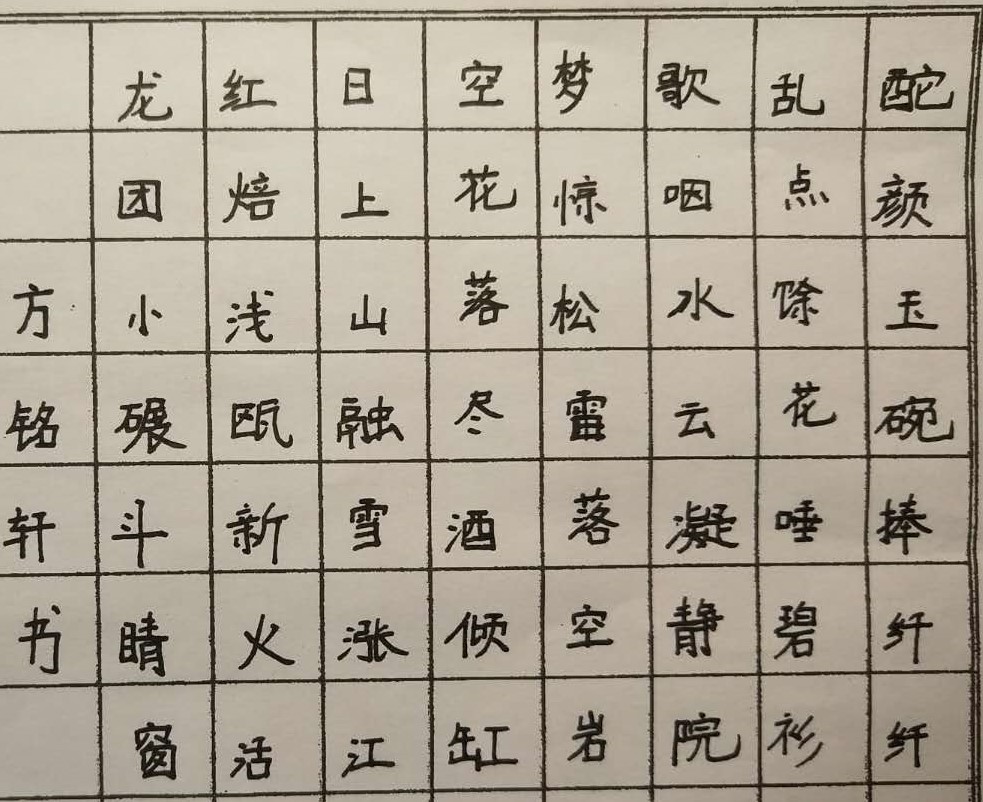 酡颜玉碗捧纤纤
乱点馀花唾碧衫
歌咽水云凝静院
梦惊松雷落空岩
空花落尽酒倾缸
日上山融雪涨江
红焙浅瓯新火活
龙团小碾斗晴窗
方铭轩书